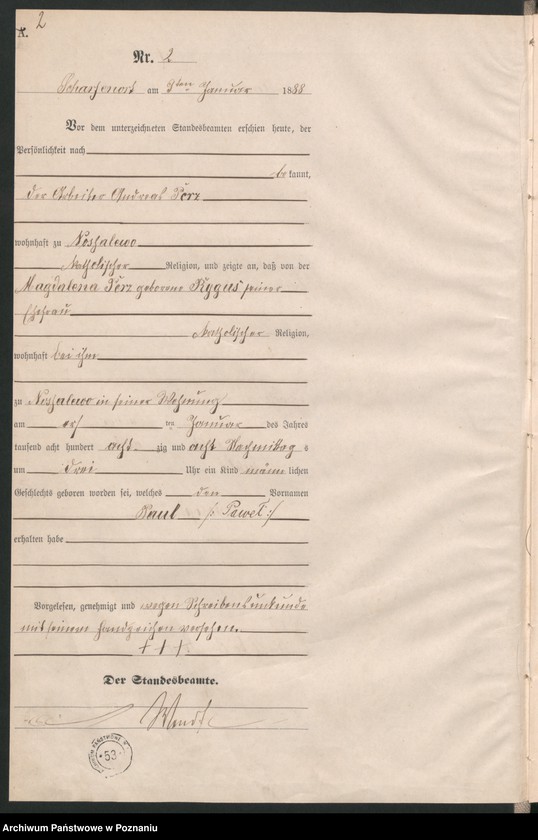 2
A.
Nr. 2
Scharfenort am 3ten Januar 1888
Vor dem unterzeichneten Standesbeamten erschien heute, der
Persönlichkeit nach
be kannt,
der Arbeiter Andreas Perz
wohnhaft zu Noszalewo
katholischer Religion, und zeigte an, daß von der
Magdalena Perz geborene Rygus seiner
Ehefrau
katholischer Religion,
wohnhaft bei ihm
zu Noszalewo in seiner Wohnung
am ers ten Januar des Jahres
tausend acht hundert acht zig und acht Nachmittag s
um drei Uhr ein Kind männ lichen
Geschlechts geboren worden sei, welches den Vornamen
Paul /: Paweł :/
erhalten habe
Vorgelesen, genehmigt und wegen Schreibensunkunde
mit seinem Handzeichen versehen.
+ + +
Der Standesbeamte.
53
Archiwum Państwowe w Poznaniu